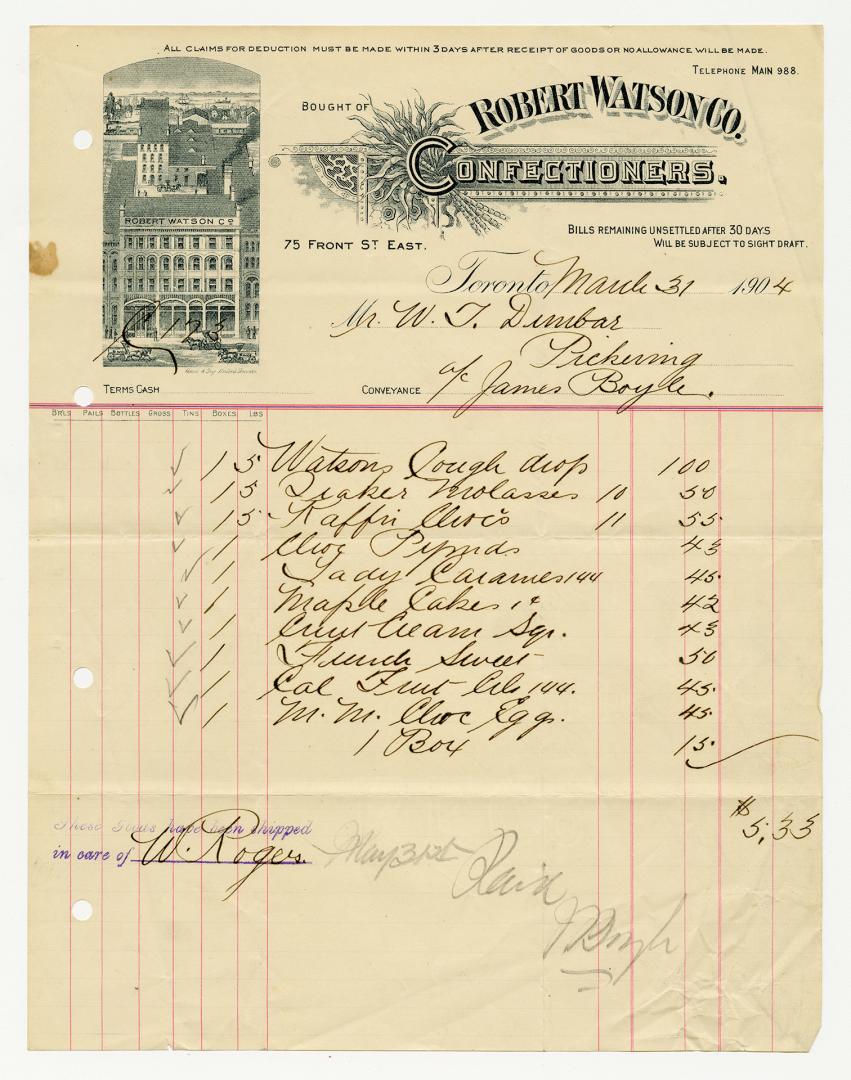 ALL CLAIMS FOR DEDUCTION MUST BE MADE WITHIN 3 DAYS AFTER RECEIPT OF GOODS OR NO ALLOWANCE WILL BE MADE.
TELEPHONE MAIN 988.
BOUGHT OF
ROBERT WATSON CO.
CONFECTIONERS.
ROBERT WATSON CO
75 FRONT ST EAST.
BILLS REMAINING UNSETTLED AFTER 30 DAYS
WILL BE SUBJECT TO SIGHT DRAFT.
Toronto March 31 1904
Mr. W. T. Dunbar
Pickering
a/c James Boyle.
TERMS CASH CONVEYANCE
BRLS PAILS BOTTLES GROSS TINS BOXES LBS
1 5 Watsons Cough drop 100
1 5 Quaker Molasses 10 50
1 5 Kaffir Choc's 11 55
1 Choc 43
1 Lady Caramels 144 45
1 Maple Cakes 1¢ 42
1 Cream Sqr. 43
1 French Sweet 50
1 Cal Fruit 144. 45
1 M. M. Choc Eggs. 45
1 Box 15
$ 5.33
These goods have been shipped
in care of W. Rogers.
May 31st Paid
J Boyle